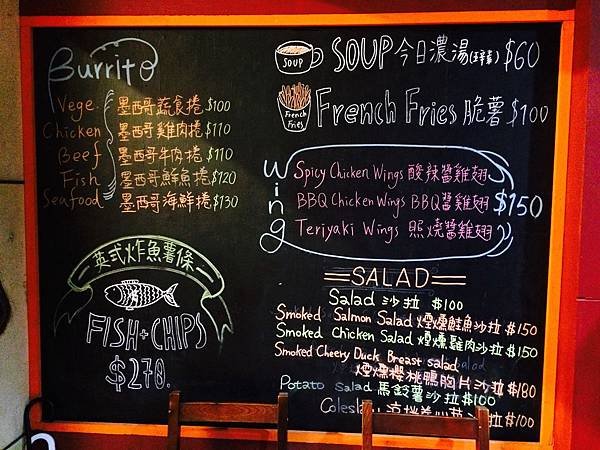 Burrito
Vege. 墨西哥蔬食捲 $100
Chicken 墨西哥雞肉捲 $110
Beef 墨西哥牛肉捲 $110
Fish 墨西哥鮮魚捲 $120
Seafood 墨西哥海鮮捲 $130
英式炸魚薯條
FISH+CHIPS
$270.
SOUP SOUP 今日濃湯 $60
French Fries French Fries 脆薯 $100
Wing
Spicy Chicken Wings 酸辣醬雞翅
BBQ Chicken Wings BBQ醬雞翅 $150
Teriyaki Wings 照燒醬雞翅
SALAD
Salad 沙拉 $100
Smoked Salmon Salad 煙燻鮭魚沙拉 $150
Smoked Chicken Salad 煙燻雞肉沙拉 $150
Smoked Cheery Duck Breast salad
煙燻櫻桃鴨胸片沙拉 $180
Potato Salad 馬鈴薯沙拉 $100
$100